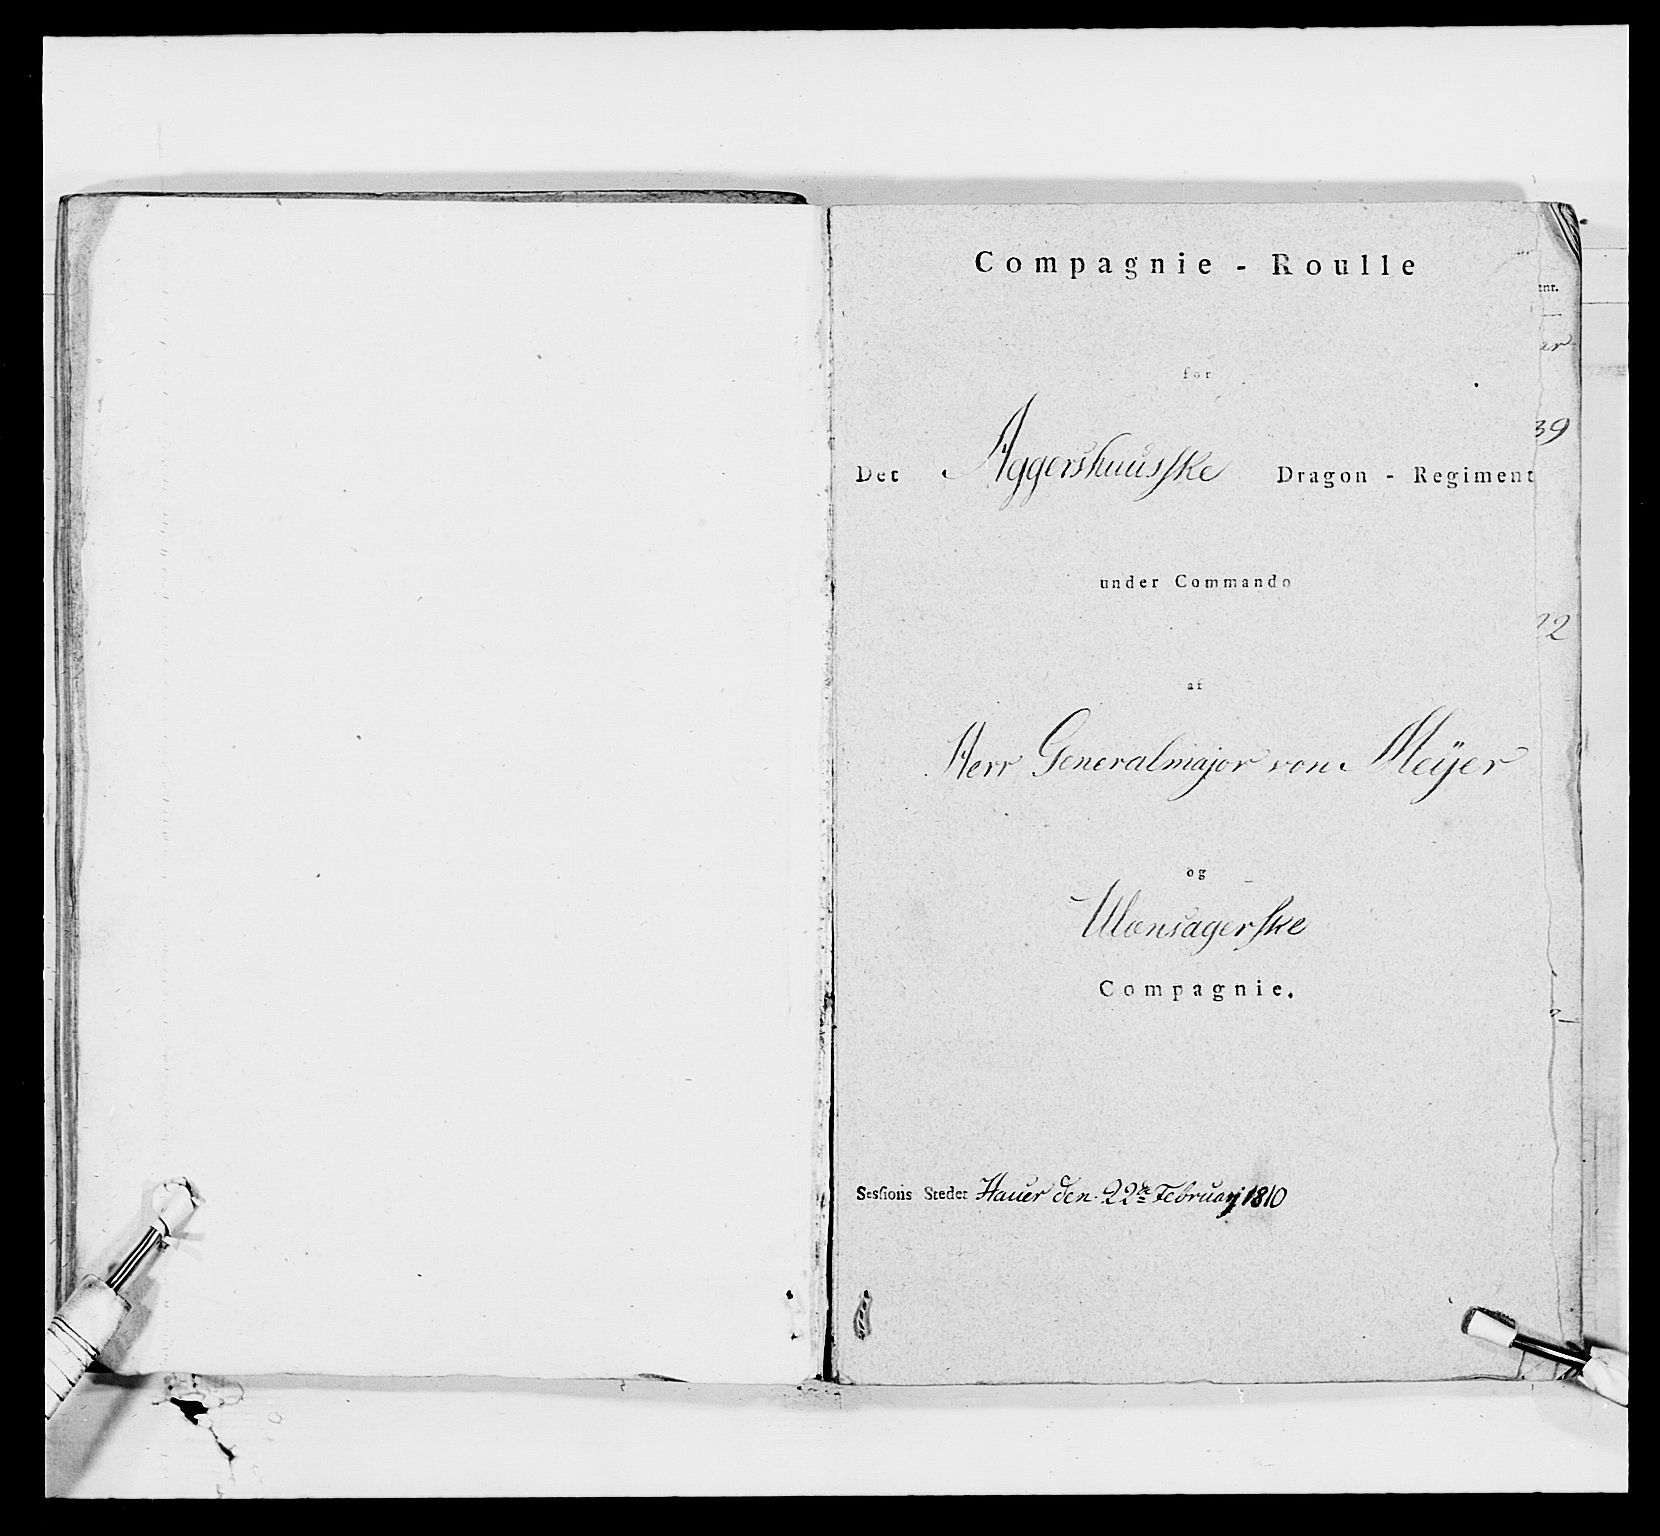 Compagnie - Roulle
for
Det Aggershuusske Dragon - Regiment
under Commando
af
Herr Generalmajor von Meÿer
og
Ulænsagerske
Compagnie.
Sessions Stedet Hauer den 22de Februarj 1810
tnr.
39